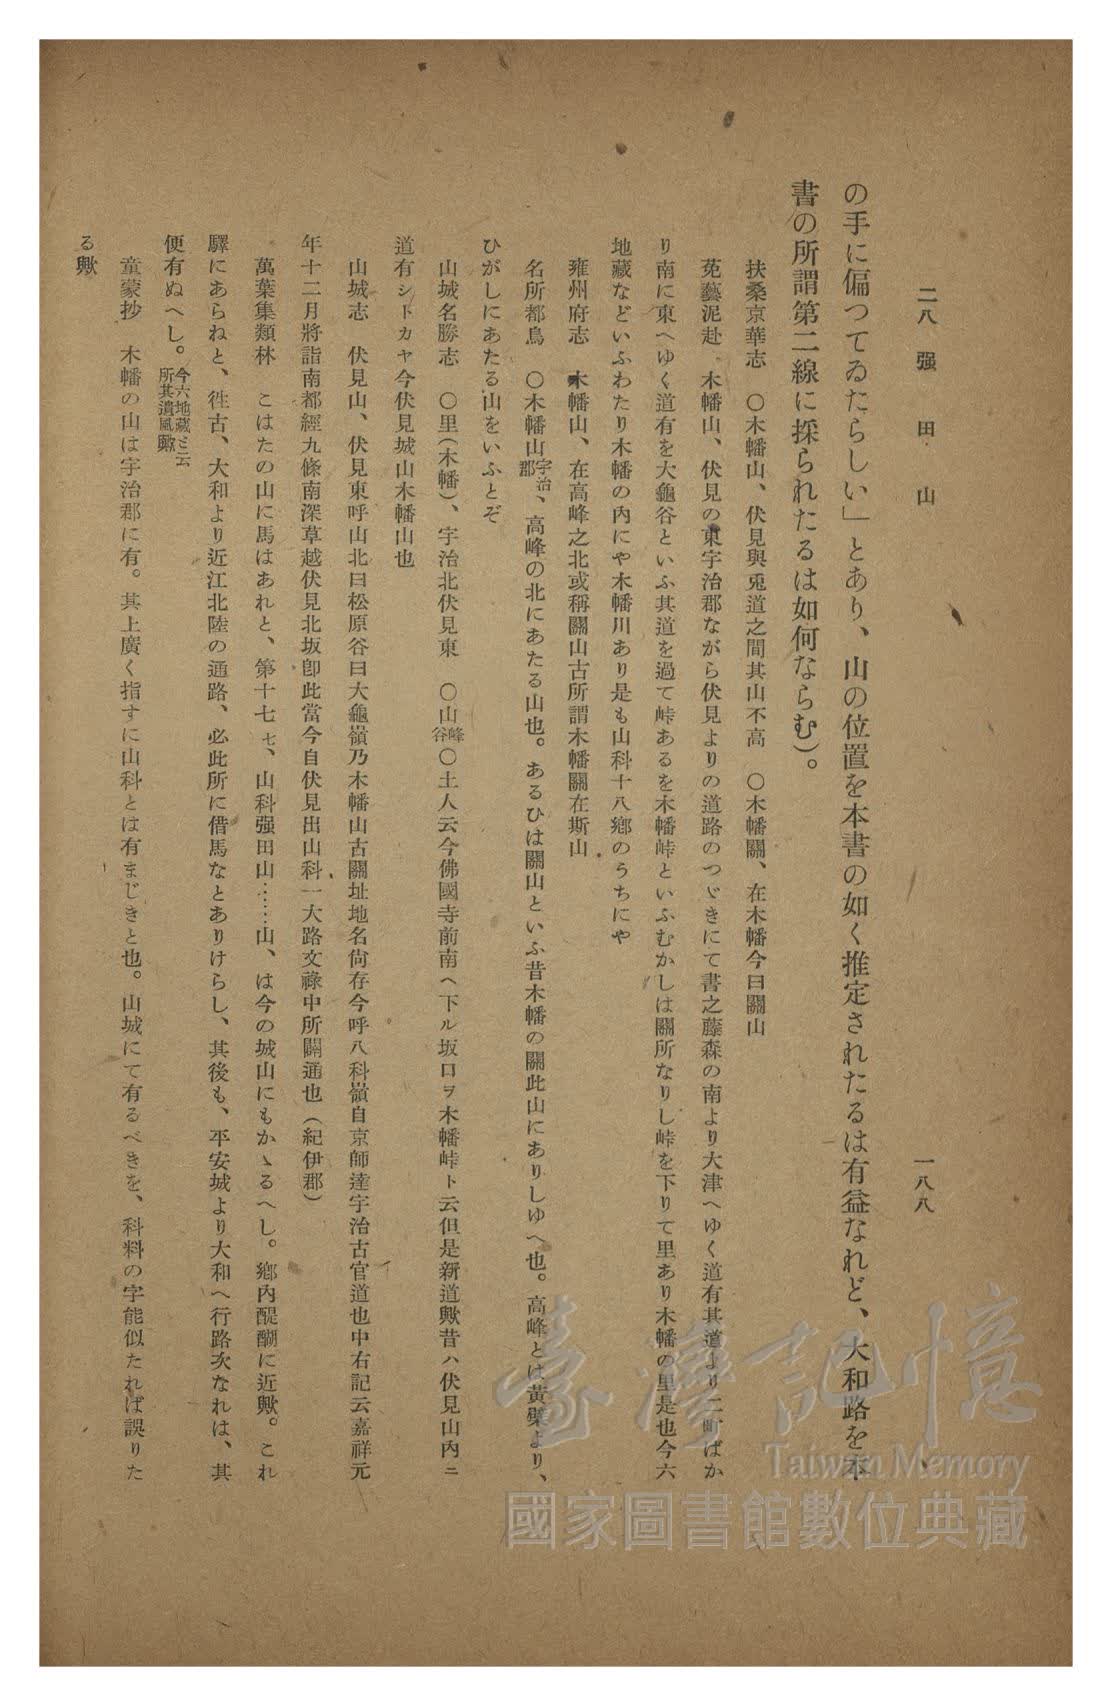 二八 强田山 一八八
の手に偏つてゐたらしい」とあり、山の位置を本書の如く推定されたるは有益なれど、大和路を本
書の所謂第二線に採られたるは如何ならむ）。
扶桑京華志 〇木幡山、伏見與兎道之間其山不高 〇木幡關、在木幡今曰關山
菟藝泥赴 木幡山、伏見の東宇治郡ながら伏見よりの道路のつゞきにて書之藤森の南より大津へゆく道有其道より二町ばか
り南に東へゆく道有を大龜谷といふ其道を過て峠あるを木幡峠といふむかしは關所なりし峠を下りて里あり木幡の里是也今六
地藏などいふわたり木幡の内にや木幡川あり是も山科十八鄕のうちにや
雍州府志 木幡山、在高峰之北或稱關山古所謂木幡關在斯山
名所都鳥 〇木幡山宇治郡、高峰の北にあたる山也。あるひは關山といふ昔木幡の關此山にありしゆへ也。高峰とは黄檗より、
ひがしにあたる山をいふとぞ
山城名勝志 〇里（木幡）、宇治北伏見東 〇山峰谷〇土人云今佛國寺前南ヘ下ル坂口ヲ木幡峠ト云但是新道歟昔ハ伏見山内ニ
道有シトカヤ今伏見城山木幡山也
山城志 伏見山、伏見東呼山北曰松原谷曰大龜嶺乃木幡山古關址地名尙存今呼八科嶺自京師達宇治古官道也中右記云嘉祥元
年十二月將詣南都經九條南深草越伏見北坂卽此當今自伏見出山科一大路文祿中所闢通也（紀伊郡）
萬葉集類林 こはたの山に馬はあれと、第十七ﾓ、山科强田山……山、は今の城山にもかゝるへし。鄕內醍醐に近歟。これ
驛にあらねと、徃古、大和より近江北陸の通路、必此所に借馬なとありけらし、其後も、平安城より大和へ行路次なれは、其
便有ぬへし。今六地藏ト云所其遺風歟
童蒙抄 木幡の山は宇治郡に有。其上廣く指すに山科とは有まじきと也。山城にて有るべきを、科料の字能似たれば誤りた
る歟
臺灣記憶
Taiwan Memory
國家圖書館數位典藏